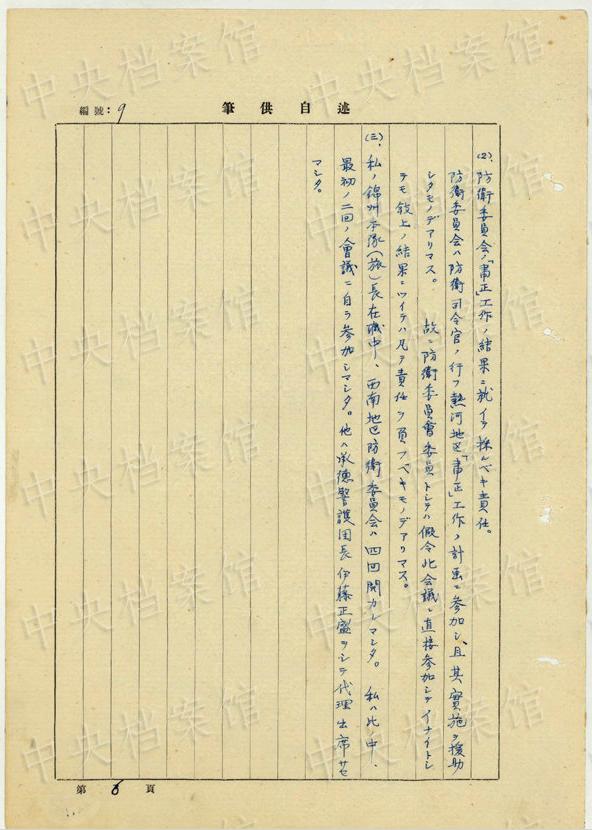 編號:9
述自供筆
(2)、防衛委員会ノ「粛正」工作ノ結果ニ就イテ採ルベキ責任。
防衛委員会ハ防衛司令官ノ行フ熱河地区「粛正」工作ノ計画ニ参加シ、且其実施ヲ援助
シタモノデアリマス。故ニ防衛委員会委員トシテハ假令此会議ニ直接参加シテイナイトシ
テモ 上ノ結果ニツイテハ凡テ責任ヲ負フベキモノデアリマス。
(三)、私ノ錦州本隊(旅)長在職中、西南地区防衛委員会ハ四回開カレマシタ。私ハ此ノ中、
最初ノ二回ノ会議ニ自ラ参加シマシタ。他ハ承徳警護団長伊藤正盛ヲシテ代理出席サセ
マシタ。
第6頁
中央档案馆